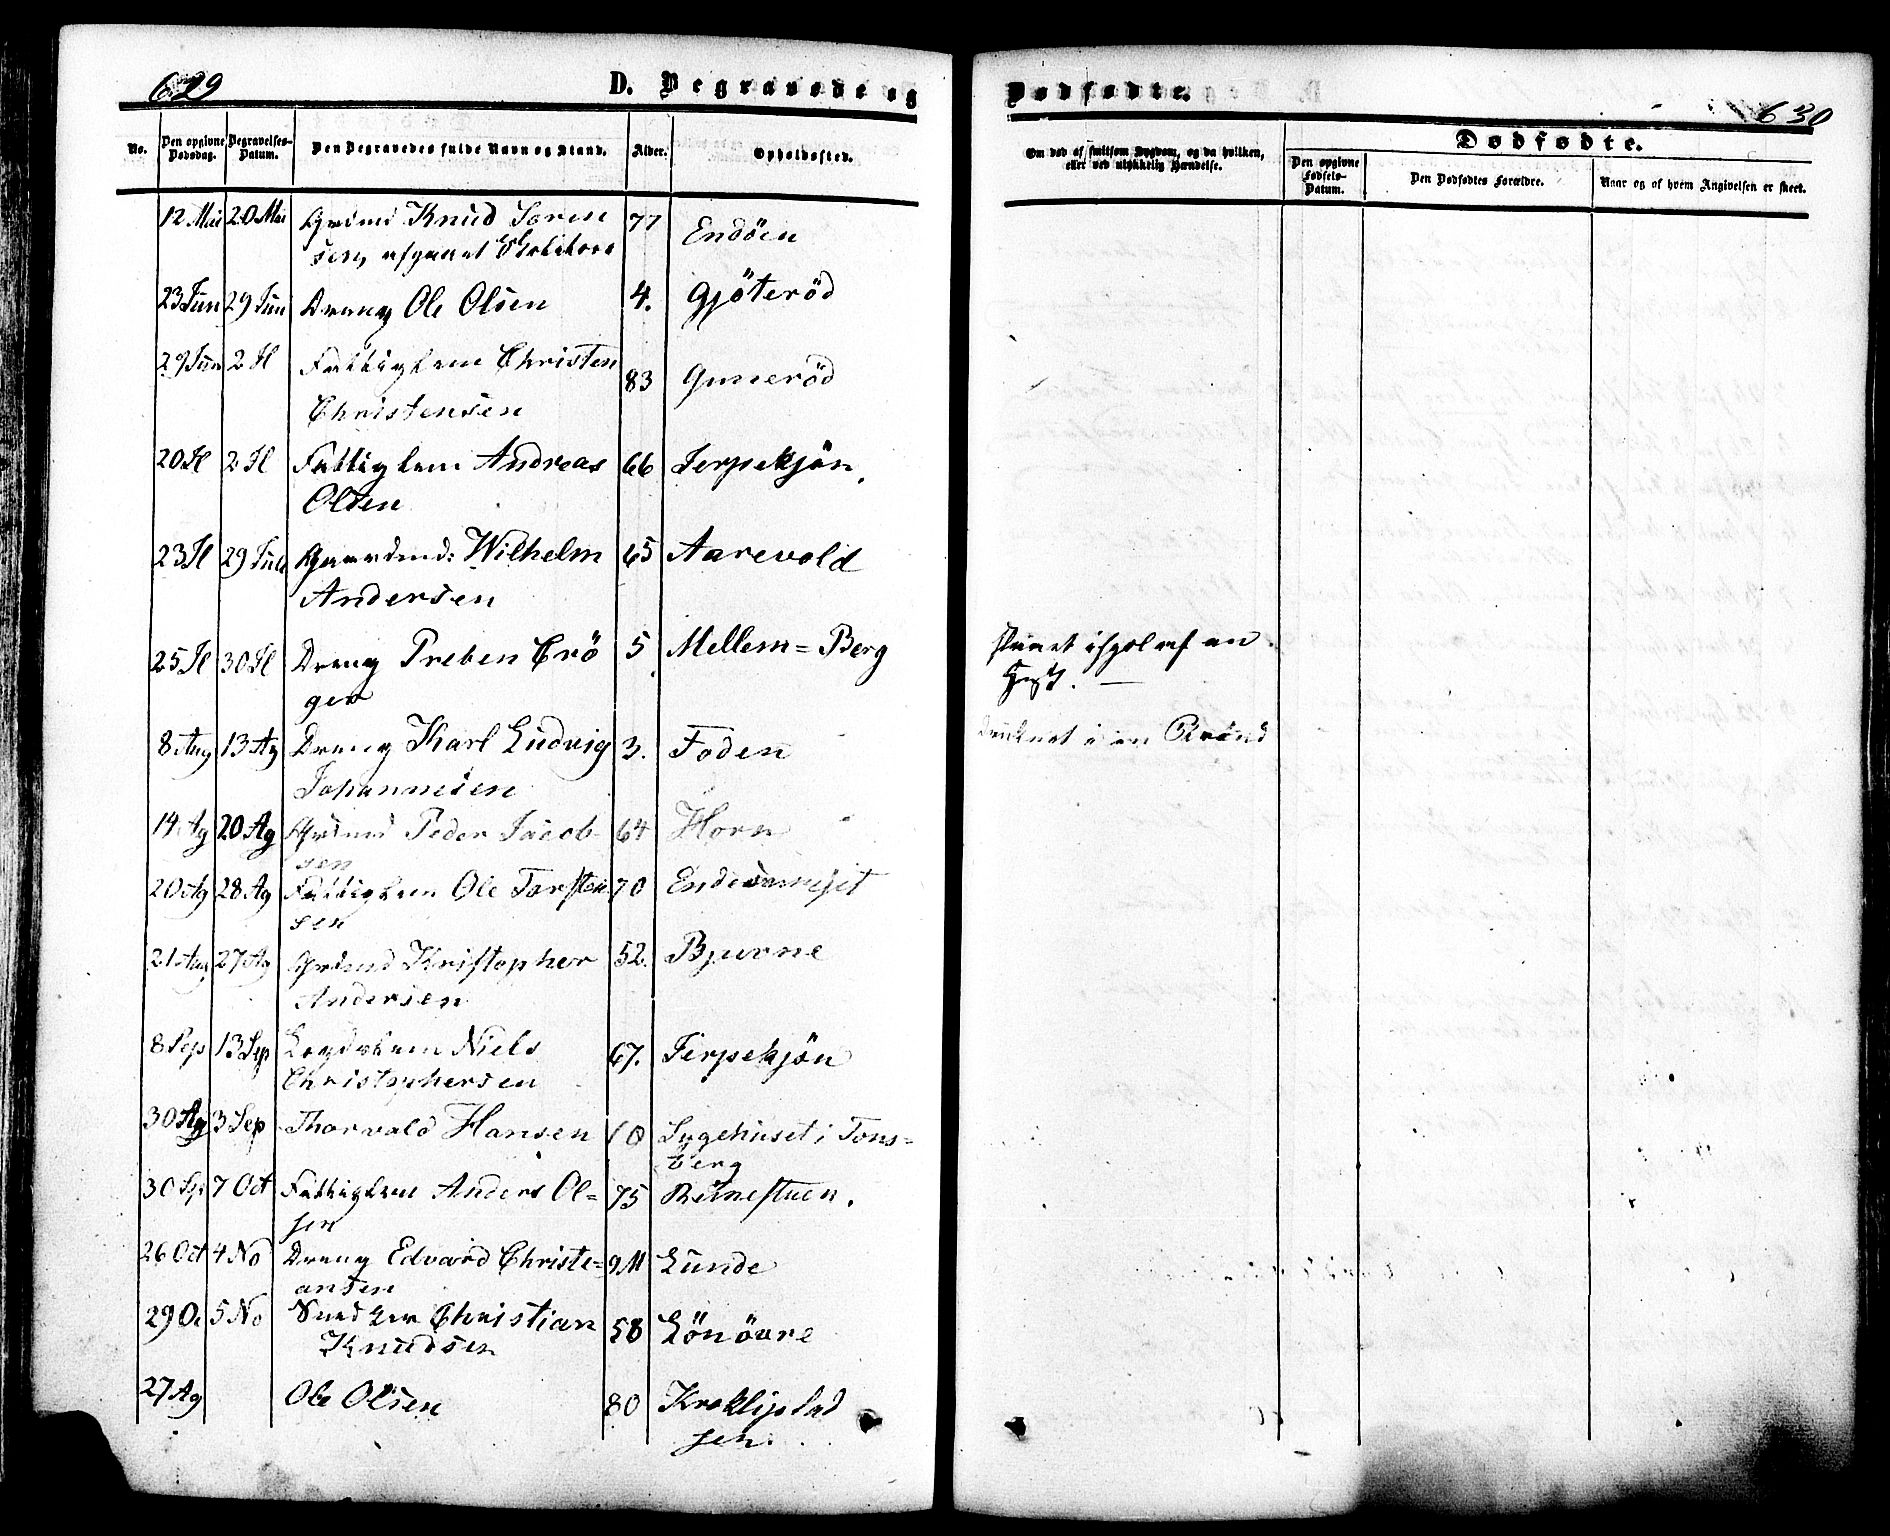 629
D. Begravede og
No.
Den opgivne Dødsdag.
Begravelses-Datum.
Den Begravedes fulde Navn og Stand.
Alder.
Opholdssted.
12 Mai 20 Mai Grdmd Knud Soren 77 Endöen
sen, afgaaet
23 Jun 29 Jun Dreng Ole Olsen 4. Gjöteröd
29 Jun 2 Jl Fattiglem Christen 83 Gunneröd
Christensen
20 Jl 2 Jl Fattiglem Andreas 66 Jerpekjön.
Olsen
23 Jl 29 Juli Gaardmd: Wilhelm 65 Aarevold
Andersen
25 Jl 30 Jl Dreng Preben Crö 5 Mellem=Berg
ger
8 Aug 13 Ag Dreng Karl Ludvig 3. Foden
Johannesen
14 Ag 20 Ag Grdmd Peder Jacob- 64 Horn
sen
20 Ag 28 Ag Fattiglem Ole Torsten 70
sen
21 Aug 27 Ag Grdmd Kristopher 52. Bjuerne
Andersen
8 Sep 13 Sep Lægdslem Niels 67. Jerpekjön
Christophersen
30 Ag 3 Sep Thorvald Hansen 10 Sygehuset i Tøns=
berg
30 Sp 7 Oct Fattiglem Anders Ol= 75 Reinestuen.
sen
26 Oct 4 No Dreng Edvard Christi= 9 M Lunde
ansen
29 Oc 5 No Snedker Christian 58 Lönövre
Knudsen
27 Ag Ole Olsen 80
Dødfødte.
630
Om død af smitsom Sygdom, og da hvilken,
eller ved ulykkelig Hændelse.
Dødfødte.
Den opgivne Fødsels-Datum.
Den Dødfødtes Forældre.
Naar og af hvem Angivelsen er skeet.
slaaet ihjel af en
Hest. —
druknet i en Brönd